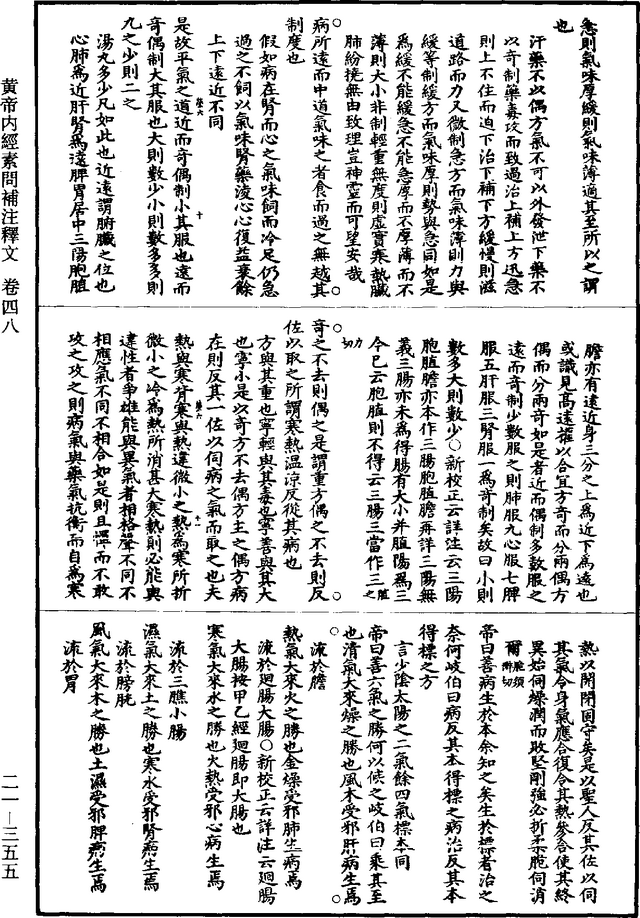 黄帝内經素問補注釋文 卷四八
二一—三五五
急則氣味厚緩則氣味薄適其至所以之謂
也
汗藥不以偶方氣不可以外發泄下藥不
以奇制藥毒攻而致過治上補上方迅急
則上不住而迫下治下補下方緩慢則滋
道路而力又微制急方而氣味薄則力與
緩等制緩方而氣味厚則勢與急同如是
爲緩不能緩急不能急厚而不厚薄而不
薄則大小非制輕重無度則虛實寒熱臟
腑紛撓無由致理豈神靈而可望安哉
病所遠而中道氣味之者食而過之無越其
制度也
假如病在腎而心之氣味飼而冷足仍急
過之不飼以氣味腎藥淩心心復益衰餘
上下遠近不同
是故平氣之道近而奇偶制小其服也遠而
奇偶制大其服也大則數少小則數多多則
九之少則二之
湯丸多少凡如此也近遠謂腑臟之位也
心肺爲近肝腎爲遠脾胃居中三陽胞䐈
膽亦有遠近身三分之上爲近下爲遠也
或識見高遠權以合宜方奇而分兩偶方
偶而分兩奇如是者近而偶制多數服之
遠而奇制少數服之則肺服九心服七脾
服五肝服三腎服一爲奇制矣故曰小則
數多大則數少○新校正云詳注云三陽
胞䐈膽亦本作三腸胞䐈膽再詳三陽無
義三腸亦未爲得腸有大小并䐈腸爲三
今已云胞䐈則不得云三腸三當作二䐈之
力切
奇之不去則偶之是謂重方偶之不去則反
佐以取之所謂寒熱溫涼反從其病也
方與其重也寧輕與其毒也寧善與其大
也寧小是以奇方不去偶方主之偶方病
在則反其一佐以伺病之氣而取之也夫
熱與寒背寒與熱違微小之熱爲寒所折
微小之冷爲熱所消甚大寒熱則必能與
違性者爭雄能與異氣者相格聲不同不
相應氣不同不相合如是則且憚而不敢
攻之攻之則病氣與藥氣抗衡而自爲寒
熱以開閉固守矣是以聖人反其佐以伺
其氣令身氣應合復令其熱參合使其終
異始同燥潤而敗堅剛強必折柔脆伺消
爾
帝曰善病生於本余知之矣生於標者治之
奈何岐伯曰病反其本得標之病治反其本
得標之方
言少陰太陽之二氣餘四氣標本同
帝曰善六氣之勝何以候之岐伯曰乘其至
也清氣大來燥之勝也風木受邪肝病生焉
流於膽
熱氣大來火之勝也金燥受邪肺生病焉
流於迴腸大腸○新校正云詳注云迴腸
大腸按甲乙經迴腸即大腸也
寒氣大來水之勝也火熱受邪心病生焉
流於三膲小腸
濕氣大來土之勝也寒水受邪腎病生焉
流於膀胱
風氣大來木之勝也土濕受邪脾病生焉
流於胃